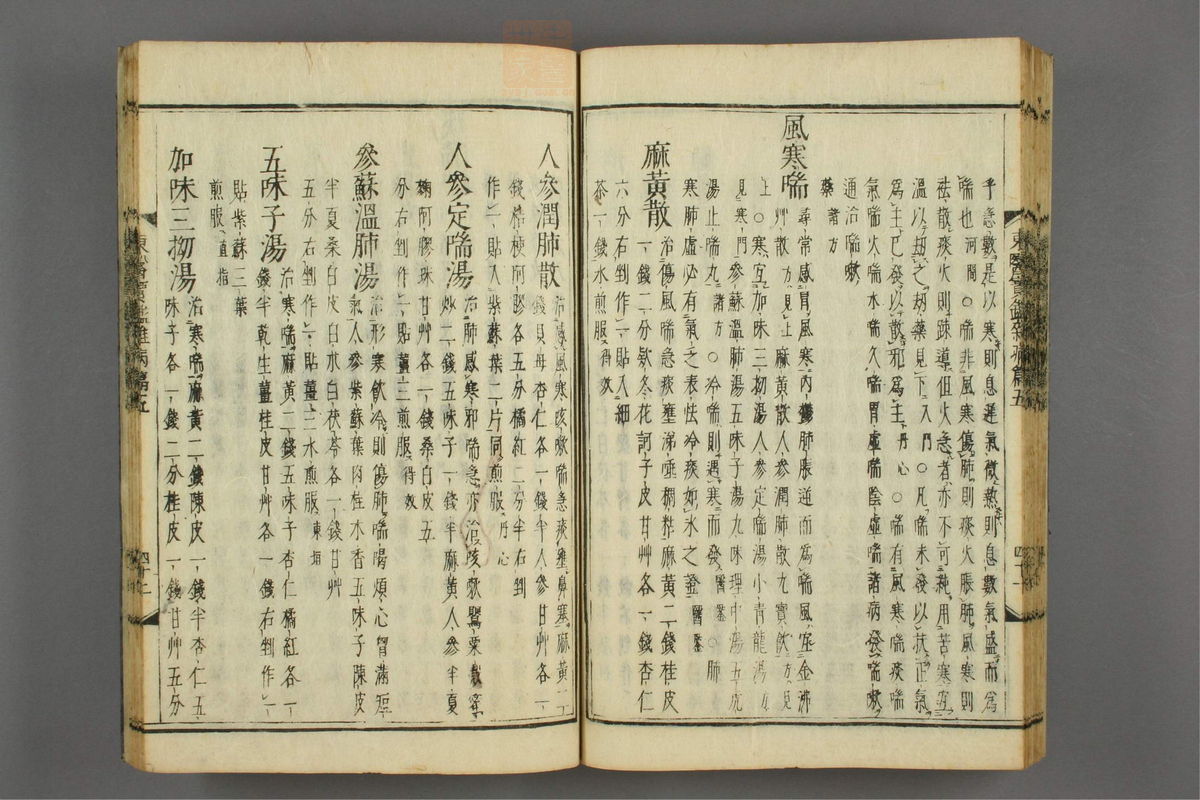 乎急數是以寒則息遲氣微熱則息數氣盛而爲
喘也河間○喘非風寒傷肺則痰火脹肺風寒則
祛散痰火則疎導但火急者亦不可純用苦寒宜
溫以劫之劫藥見下入門○凡喘未發以扶正氣
爲主已發以散邪爲主丹心○喘有風寒喘痰喘
氣喘火喘水喘久喘胃虛喘陰虛喘諸病發喘嗽
通治喘嗽
藥諸方
風寒喘
尋常感冒風寒內鬱肺脹逆而爲喘風宜金沸
艸散方見上麻黃散人參潤肺散九寶飮方見
上○寒宜加味三拗湯人參定喘湯小靑龍湯方
見寒門參蘇溫肺湯五味子湯九味理中湯五虎
湯止喘丸諸方○冷喘則遇寒而發醫鑒○肺
寒肺虛必有氣乏表怯冷痰如氷之證醫鑒
麻黃散
治傷風喘急痰壅涕唾稠粘麻黃二錢桂皮
一錢二分欵冬花訶子皮甘艸各一錢杏仁
六分右剉作一貼入細
茶一錢水煎服得效
東醫寶鑑雜病篇五
四十一
人參潤肺散
治感風寒咳嗽喘急痰壅鼻塞麻黃二
錢貝母杏仁各一錢半人參甘艸各一
錢桔梗阿膠各五分橘紅二分半右剉
作一貼入紫蘇葉二片同煎服丹心
人參定喘湯
治肺感寒邪喘急亦治咳嗽鸎粟殼蜜
炒二錢五味子一錢半麻黃人參半夏
麴阿膠珠甘艸各一錢桑白皮五
分右剉作一貼薑三煎服得效
參蘇溫肺湯
治形寒飮冷則傷肺喘喝煩心胷滿短
氣人參紫蘇葉肉桂木香五味子陳皮
半夏桑白皮白朮白茯苓各一錢甘艸
五分右剉作一貼薑三水煎服東垣
五味子湯
治寒喘麻黃二錢五味子杏仁橘紅各一
錢半乾生薑桂皮甘艸各一錢右剉作一
貼紫蘇三葉
煎服直指
加味三拗湯
治寒喘麻黃二錢陳皮一錢半杏仁五
味子各一錢二分桂皮一錢甘艸五分
東醫寶鑑雜病篇五
四十二